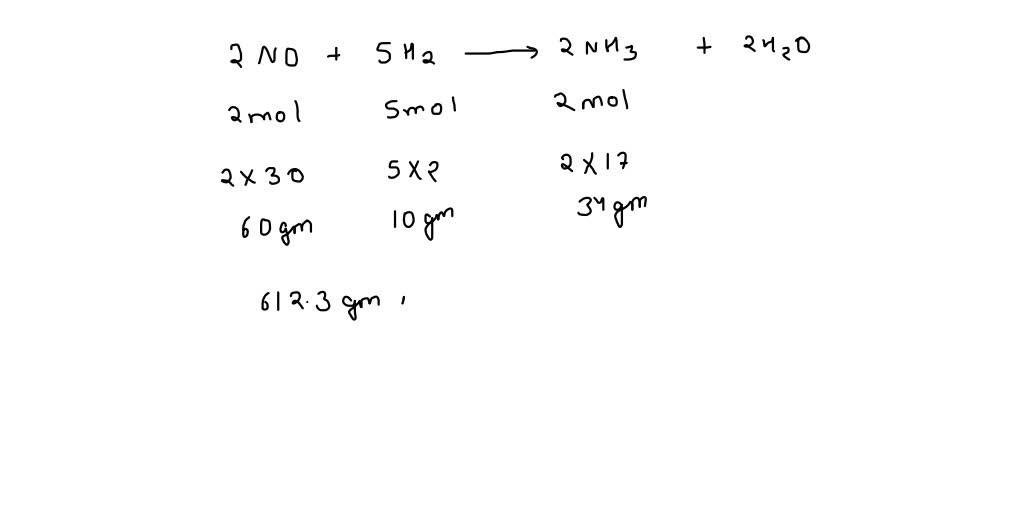 2 NO + 5 H2 ⟶ 2 NH3 + 2H2O
2mol 5mol 2mol
2 × 30 5 × 2 2 × 17
60 gm 10 gm 34 gm
612.3 gm ,